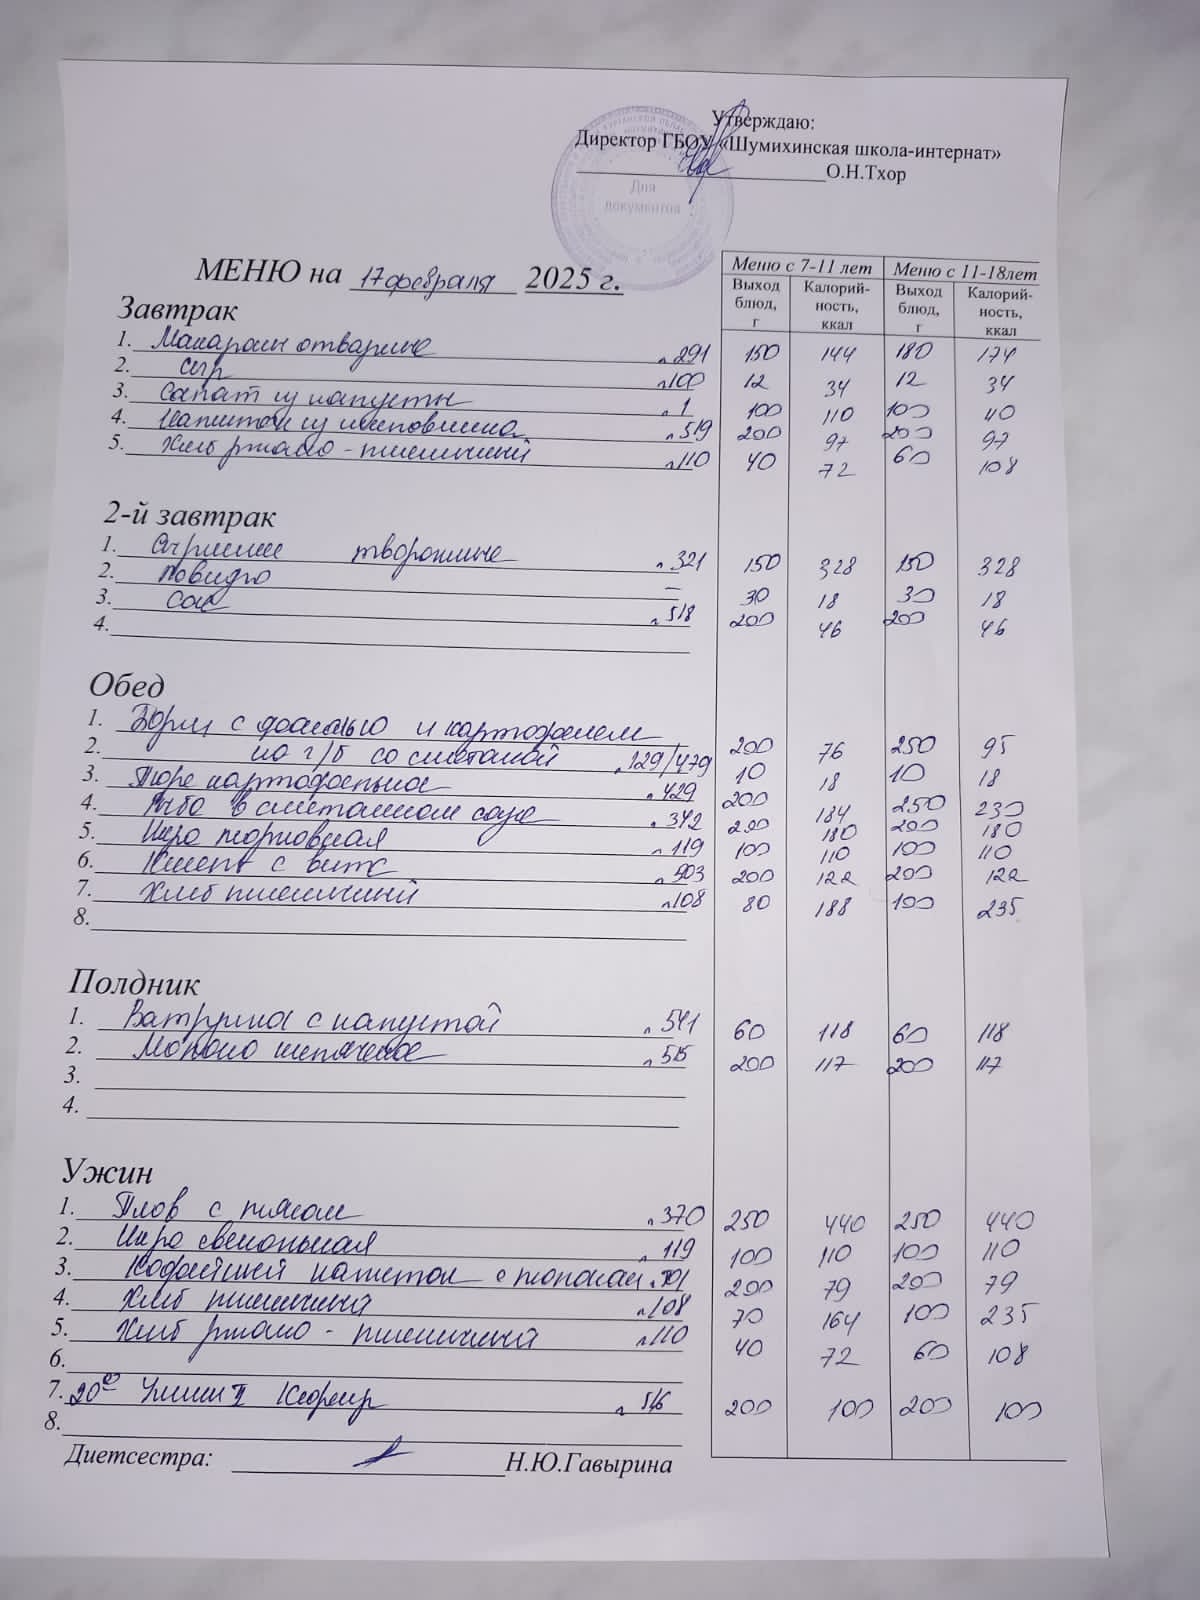 Утверждаю:
Директор ГБОУ «Шумихинская школа-интернат»
О.Н.Тхор
Для
документов
МЕНЮ на 17 февраля 2025 г.
Меню с 7-11 лет Меню с 11-18лет
Выход блюд, г Калорий-ность, ккал Выход блюд, г Калорий-ность, ккал
Завтрак
1. Макароны отварные л.291 150 144 180 174
2. Сыр л100 12 34 12 34
3. Салат из капусты л.1 100 110 100 40
4. Напиток из шиповника л.519 200 97 200 97
5. Хлеб ржано-пшеничный л110 40 72 60 108
2-й завтрак
1. Сырники творожные л.321 150 328 150 328
2. Повидло – 30 18 30 18
3. Сок л.518 200 46 200 46
4.
Обед
1. Борщ с фасолью и картофелем
2. на г/б со сметаной л.129/479 200 76 250 95
10 18 10 18
3. Пюре картофельное л.429 200 184 250 230
4. Рыба в сметанном соусе л.342 200 180 200 180
5. Икра морковная л119 100 110 100 110
6. Кисель с вит С л.903 200 122 200 122
7. Хлеб пшеничный л108 80 188 100 235
8.
Полдник
1. Ватрушка с капустой л.541 60 118 60 118
2. Молоко кипяченое л.515 200 117 200 117
3.
4.
Ужин
1. Плов с мясом л.370 250 440 250 440
2. Икра свекольная л119 100 110 100 110
3. Кофейный напиток с молоком л.501 200 79 200 79
4. Хлеб пшеничный л.108 70 164 100 235
5. Хлеб ржано-пшеничный л110 40 72 60 108
6.
7. 20⁰⁰ Ужин II Кефир л 516 200 100 200 100
8.
Диетсестра: Н.Ю.Гавырина